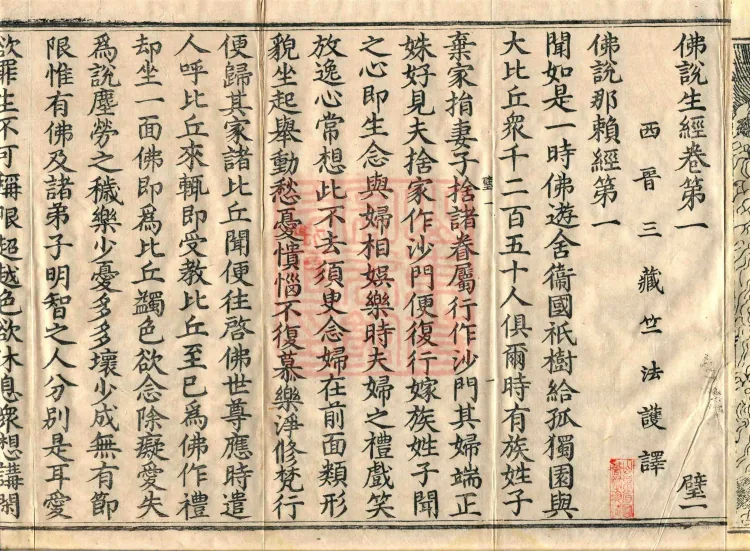 佛說生經卷第一 壁一
西晉三藏竺法護譯
佛說那賴經第一
聞如是一時佛遊舍衞國祇樹給孤獨園與
大比丘衆千二百五十人俱爾時有族姓子
棄家捐妻子捨諸眷屬行作沙門其婦端正
姝好見夫捨家作沙門便復行嫁族姓子聞
之心即生念與婦相娛樂時夫婦之禮戲笑
放逸心常想此不去須臾念婦在前面類形
貌坐起舉動愁憂憒惱不復慕樂淨修梵行
便歸其家諸比丘聞便往啓佛世尊應時遣
人呼比丘來輒即受教比丘至已爲佛作禮
却坐一面佛即爲比丘蠲色欲念除癡愛失
爲說塵勞之穢樂少憂多多壞少成無有節
限惟有佛及諸弟子明智之人分別是耳愛
欲罪生不可稱限超越色欲休息衆想講閑